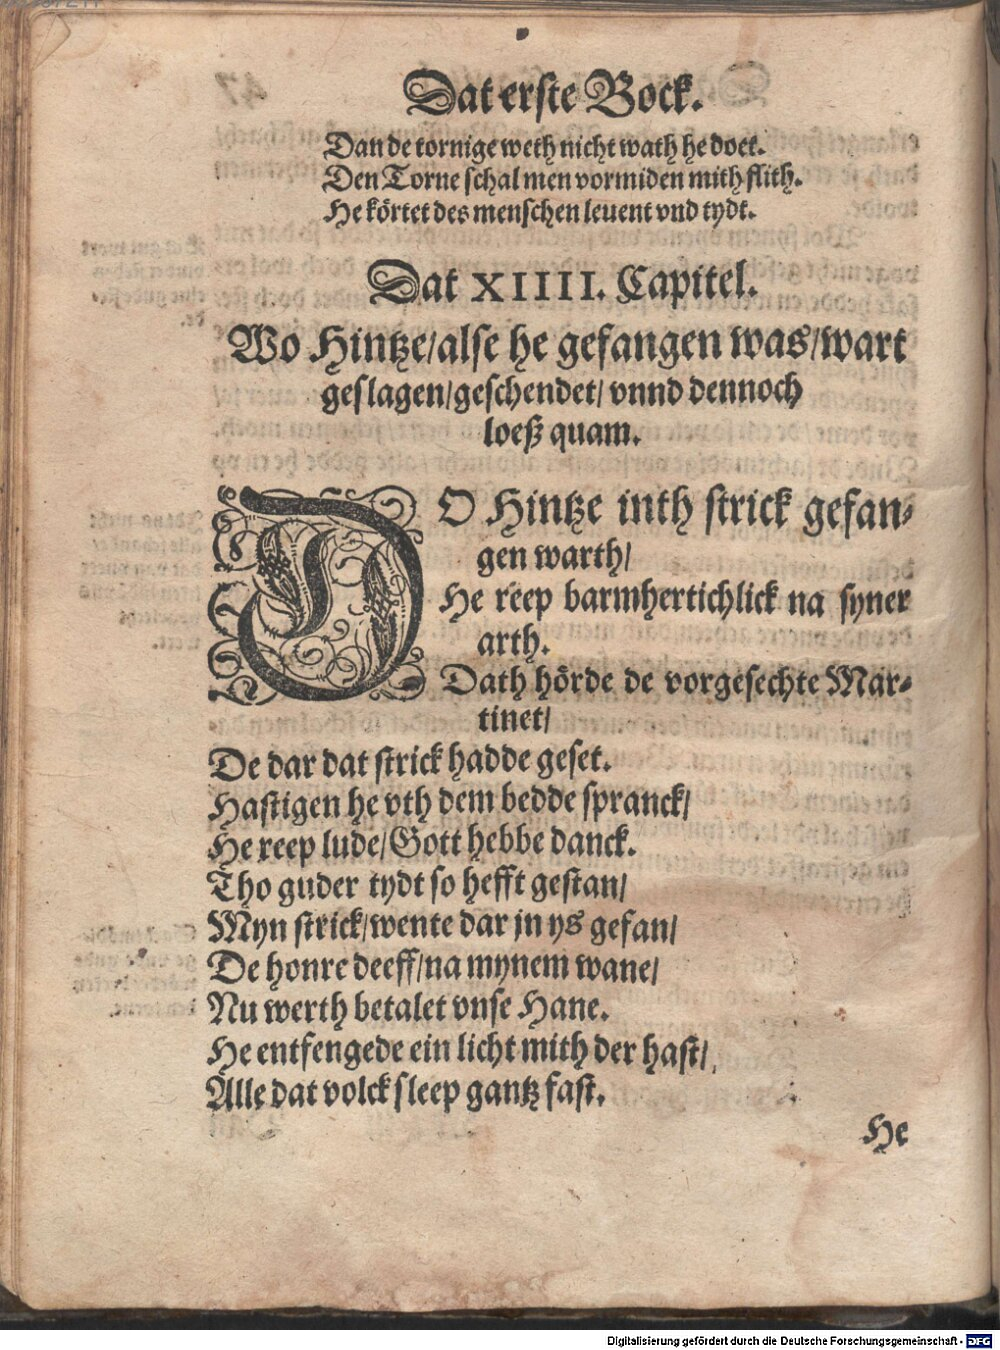 Dat erste Bock.
Dan de tornige weth nicht wath he doet.
Den Torne schal men vormiden mith flith.
He körtet des menschen leuent vnd tydt.
Dat XIIII. Capitel.
Wo Hintze/alse he gefangen was/wart
geslagen/geschendet/ vnnd dennoch
loeß quam.
DO Hintze inth strick gefan-
gen warth/
He reep barmhertichlick na syner
arth.
Dath hörde de vorgesechte Mar-
tinet/
De dar dat strick hadde geset.
Hastigen he vth dem bedde spranck/
He reep lude/Gott hebbe danck.
Tho guder tydt so hefft gestan/
Myn strick/wente dar jn ys gefan/
De honre deeff/na mynem wane/
Nu werth betalet vnse Hane.
He entfengede ein licht mith der hast/
Alle dat volck sleep gantz fast.
He
Digitalisierung gefördert durch die Deutsche Forschungsgemeinschaft - DFG